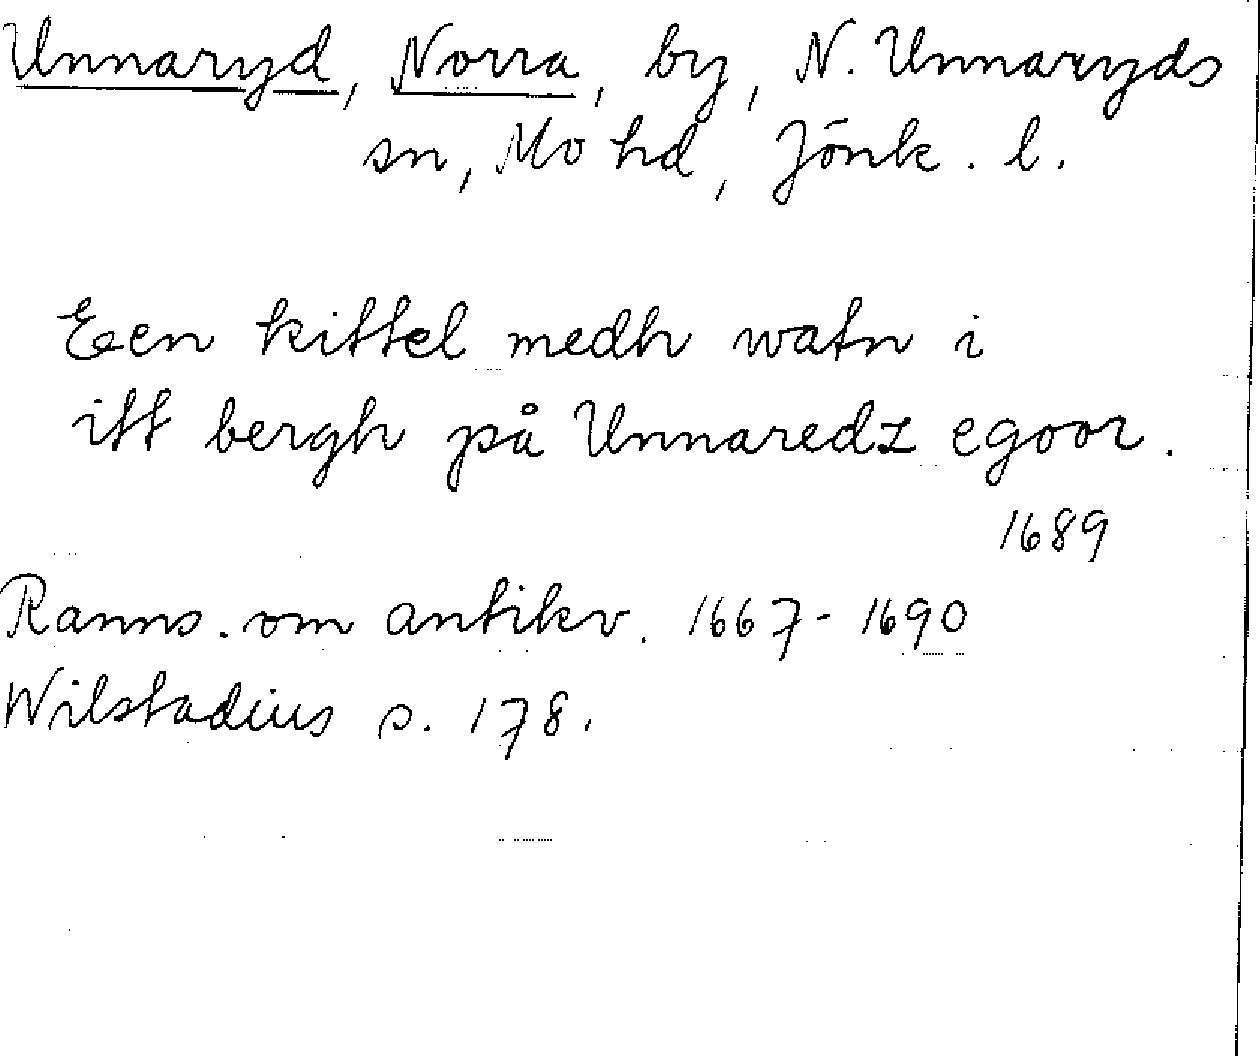 Unnaryd, Norra, by, N. Unnaryds
sn, Mo hd, Jönk. l.
Een kittel medh watn i
itt bergh på Unnaredz egoor.
1689
Ranns. om antikv. 1667-1690
Wilstadius s. 178.